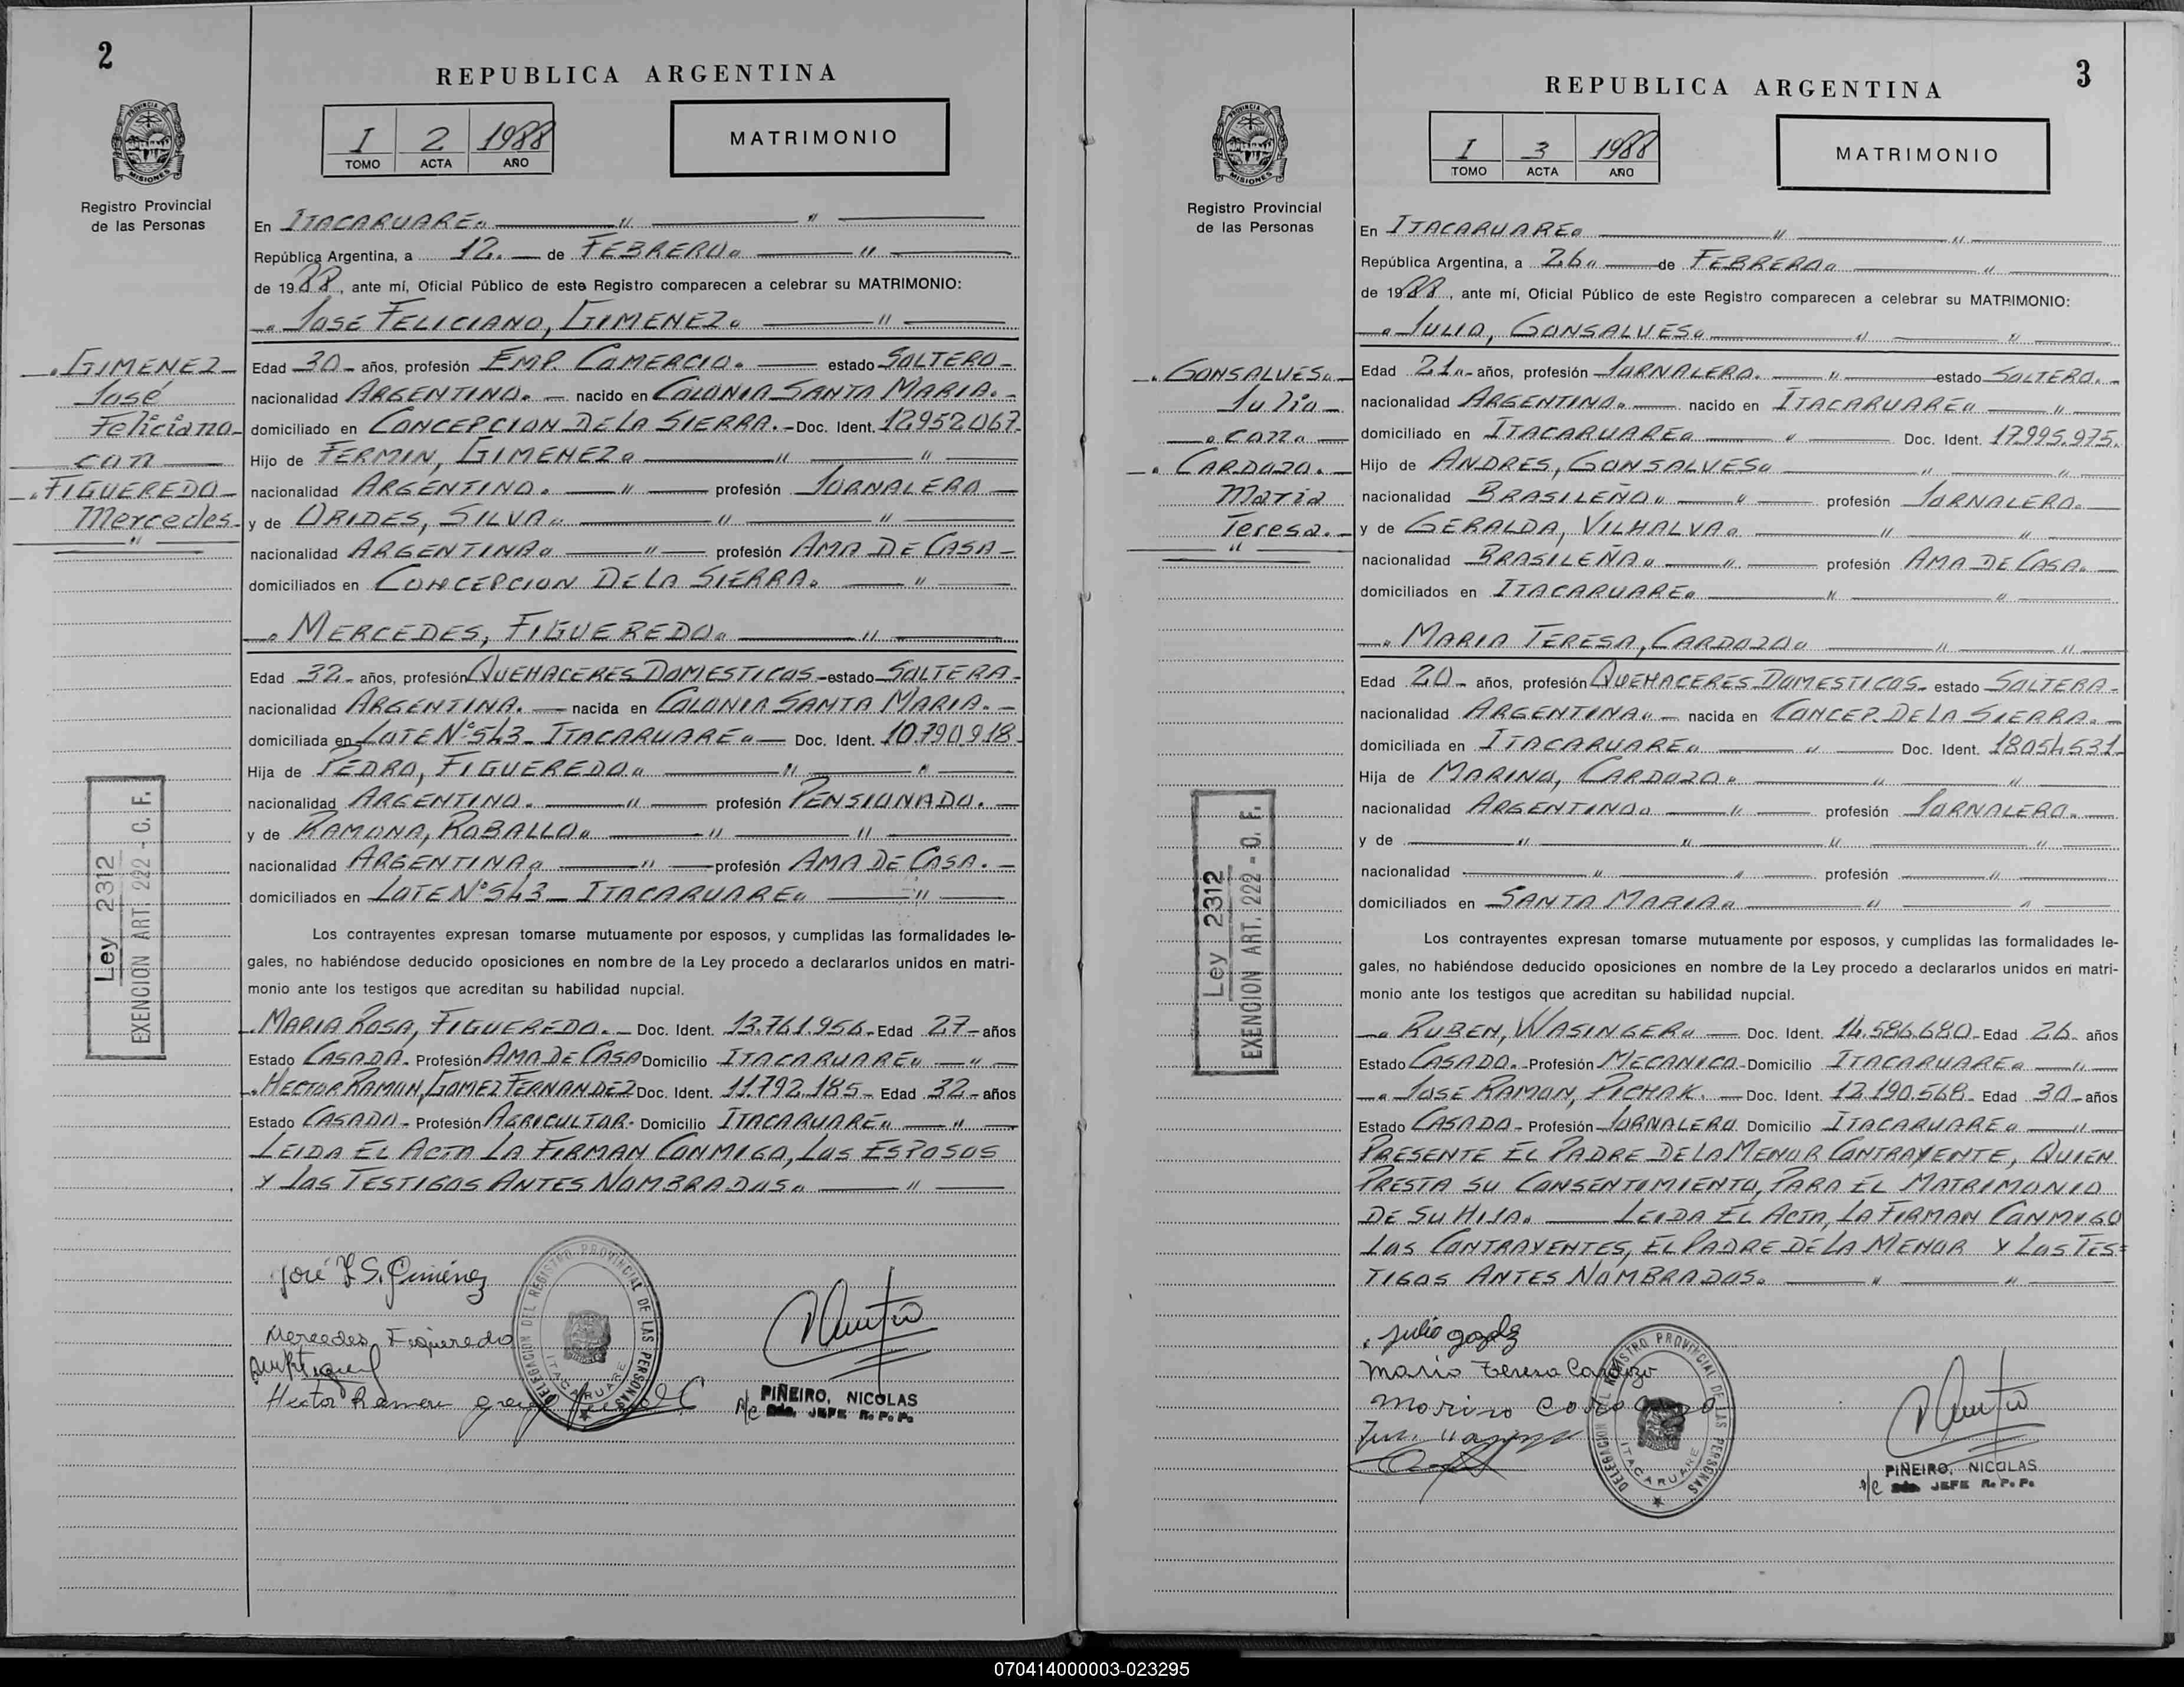 2
REPUBLICA ARGENTINA
PROVINCIA DE MISIONES
Registro Provincial
de las Personas
I 2 1988
TOMO ACTA AÑO
MATRIMONIO
En ITACARUARE.
República Argentina, a 12. de FEBRERO.
de 1988, ante mí, Oficial Público de este Registro comparecen a celebrar su MATRIMONIO:
JOSÉ FELICIANO, GIMENEZ.
GIMENEZ
José
Feliciano
con
FIGUEREDO
Mercedes
Edad 30 años, profesión EMP. COMERCIO. estado SOLTERO
nacionalidad ARGENTINO. nacido en COLONIA SANTA MARIA.
domiciliado en CONCEPCION DE LA SIERRA. Doc. Ident. 12952067
Hijo de FERMIN, GIMENEZ.
nacionalidad ARGENTINO. profesión JORNALERO
y de ORIDES, SILVA.
nacionalidad ARGENTINA. profesión AMA DE CASA
domiciliados en CONCEPCION DE LA SIERRA.
MERCEDES, FIGUEREDO.
Edad 32 años, profesión QUEHACERES DOMESTICOS estado SOLTERA
nacionalidad ARGENTINA. nacida en COLONIA SANTA MARIA.
domiciliada en LOTE Nº 543 ITACARUARE. Doc. Ident. 10.790.918
Hija de PEDRO, FIGUEREDO.
nacionalidad ARGENTINO. profesión PENSIONADO.
y de RAMONA, ROBALLO.
nacionalidad ARGENTINA. profesión AMA DE CASA.
domiciliados en LOTE Nº 543 ITACARUARE.
Ley 2312
EXENCION ART. 222 - C. F.
Los contrayentes expresan tomarse mutuamente por esposos, y cumplidas las formalidades le-
gales, no habiéndose deducido oposiciones en nombre de la Ley procedo a declararlos unidos en matri-
monio ante los testigos que acreditan su habilidad nupcial.
MARIA ROSA, FIGUEREDO. Doc. Ident. 13.761.956 Edad 27 años
Estado CASADA. Profesión AMA DE CASA Domicilio ITACARUARE.
HECTOR RAMON, GOMEZ FERNANDEZ Doc. Ident. 11.792.185 Edad 32 años
Estado CASADO Profesión AGRICULTOR. Domicilio ITACARUARE.
LEIDA EL ACTA LA FIRMAN CONMIGO, LOS ESPOSOS
Y LOS TESTIGOS ANTES NOMBRADOS.
José F S. Giménez
Mercedes Figueredo
Hector Ramon
DELEGACION DEL REGISTRO PROVINCIAL DE LAS PERSONAS
ITACARUARE
PIÑEIRO, NICOLAS
a/c Sdo. JEFE R. P. P.
3
REPUBLICA ARGENTINA
PROVINCIA DE MISIONES
Registro Provincial
de las Personas
I 3 1988
TOMO ACTA AÑO
MATRIMONIO
En ITACARUARE.
República Argentina, a 26. de FEBRERO.
de 1988, ante mí, Oficial Público de este Registro comparecen a celebrar su MATRIMONIO:
JULIO, GONSALVES.
GONSALVES.
Julio
con
CARDOZO.
Maria
Teresa.
Edad 21 años, profesión JORNALERO. estado SOLTERO.
nacionalidad ARGENTINO. nacido en ITACARUARE.
domiciliado en ITACARUARE. Doc. Ident. 17.995.975.
Hijo de ANDRES, GONSALVES.
nacionalidad BRASILEÑO. profesión JORNALERO.
y de GERALDA, VILHALVA.
nacionalidad BRASILEÑA. profesión AMA DE CASA.
domiciliados en ITACARUARE.
MARIA TERESA, CARDOZO.
Edad 20 años, profesión QUEHACERES DOMESTICOS estado SOLTERA
nacionalidad ARGENTINA. nacida en CONCEP. DE LA SIERRA.
domiciliada en ITACARUARE. Doc. Ident. 18054531
Hija de MARINO, CARDOZO.
nacionalidad ARGENTINO. profesión JORNALERO.
y de
nacionalidad profesión
domiciliados en SANTA MARIA.
Ley 2312
EXENCION ART. 222 - C. F.
Los contrayentes expresan tomarse mutuamente por esposos, y cumplidas las formalidades le-
gales, no habiéndose deducido oposiciones en nombre de la Ley procedo a declararlos unidos en matri-
monio ante los testigos que acreditan su habilidad nupcial.
RUBEN, WASINGER. Doc. Ident. 14.586.680 Edad 26 años
Estado CASADO. Profesión MECANICO Domicilio ITACARUARE.
JOSE RAMON, PICHAK. Doc. Ident. 12.190.568 Edad 30 años
Estado CASADO Profesión JORNALERO Domicilio ITACARUARE.
PRESENTE EL PADRE DE LA MENOR CONTRAYENTE, QUIEN
PRESTA SU CONSENTIMIENTO, PARA EL MATRIMONIO
DE SU HIJA. LEIDA EL ACTA, LA FIRMAN CONMIGO
LOS CONTRAYENTES, EL PADRE DE LA MENOR Y LOS TES=
TIGOS ANTES NOMBRADOS.
Julio
Maria Teresa Cardozo
Marino Cardozo
DELEGACION DEL REGISTRO PROVINCIAL DE LAS PERSONAS
ITACARUARE
PIÑEIRO, NICOLAS
a/c Sdo. JEFE R. P. P.
070414000003-023295